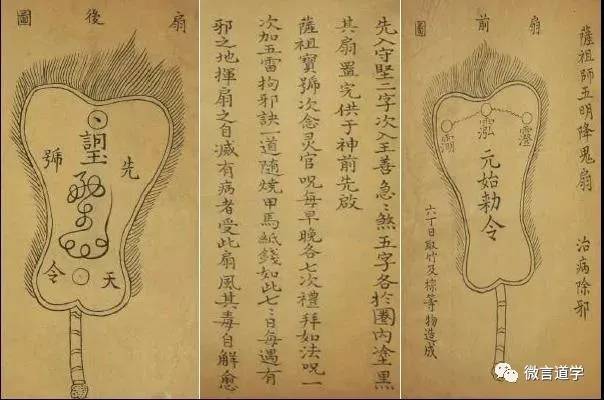 薩祖師五明降鬼扇 治病除邪
扇前圖
元始勅令
六丁日取竹及棕等物造成
先入守堅二字次入王善急〻煞五字各於圈內塗黑
其扇置完供于神前先啟
薩祖寶號次念灵官咒每早晚各七次禮拜如法咒一
次加五雷拘邪訣一道隨燒甲馬紙錢如此七〻日每遇有
邪之地揮扇之自滅有病者受此扇風其毒自解愈
扇後圖
先天
號令
微言道学